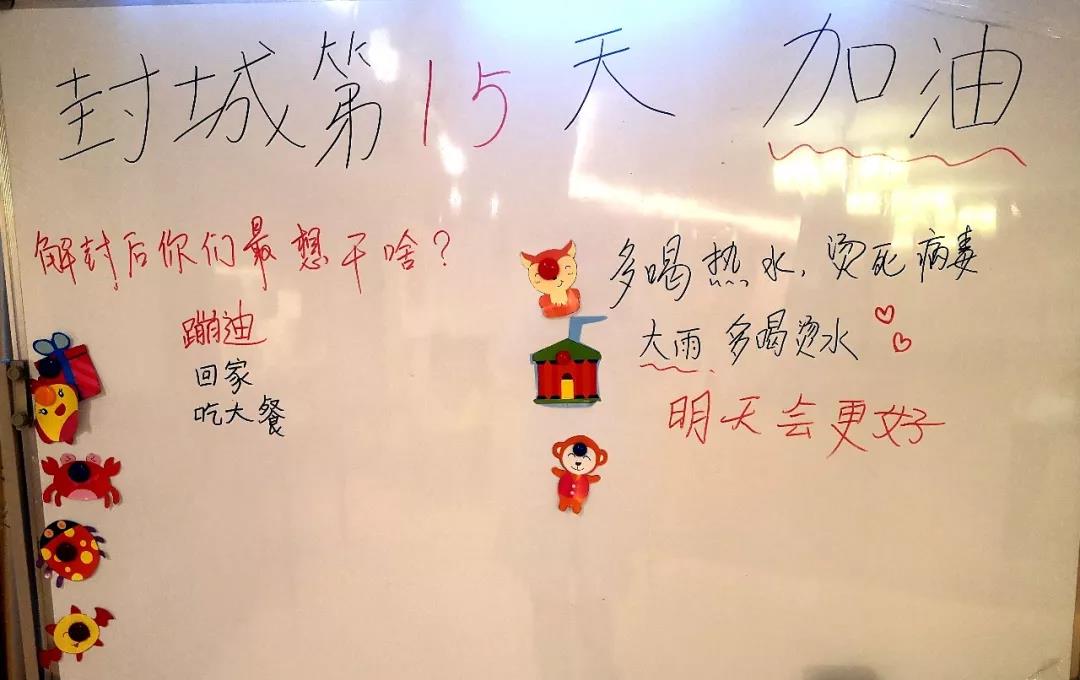 封城第15天 加油
解封后你们最想干啥？
蹦迪
回家
吃大餐
多喝热水，烫死病毒
大雨 多喝烫水
明天会更好